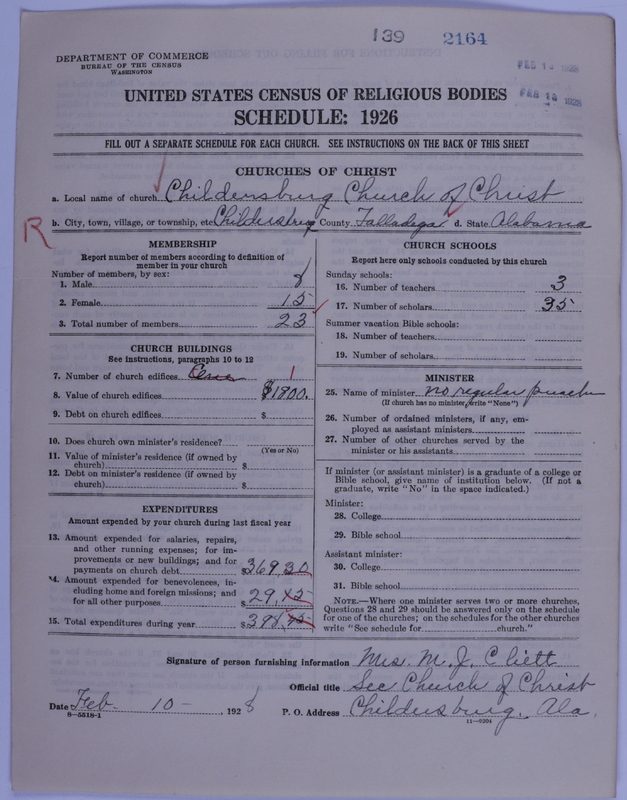 139 2164
DEPARTMENT OF COMMERCE
BUREAU OF THE CENSUS
WASHINGTON
FEB 13 1928
FEB 14 1928
UNITED STATES CENSUS OF RELIGIOUS BODIES
SCHEDULE: 1926
FILL OUT A SEPARATE SCHEDULE FOR EACH CHURCH. SEE INSTRUCTIONS ON THE BACK OF THIS SHEET
CHURCHES OF CHRIST
a. Local name of church Childersburg Church of Christ
R
b. City, town, village, or township, etc Childersburg County Talladega d. State Alabama
MEMBERSHIP
Report number of members according to definition of
member in your church
Number of members, by sex:
1. Male 8
2. Female 15
3. Total number of members 23
CHURCH BUILDINGS
See instructions, paragraphs 10 to 12
7. Number of church edifices 1
8. Value of church edifices $1800.
9. Debt on church edifices $
10. Does church own minister's residence?
(Yes or No)
11. Value of minister's residence (if owned by
church) $
12. Debt on minister's residence (if owned by
church) $
EXPENDITURES
Amount expended by your church during last fiscal year
13. Amount expended for salaries, repairs,
and other running expenses; for im-
provements or new buildings; and for
payments on church debt $369.30
14. Amount expended for benevolences, in-
cluding home and foreign missions; and
for all other purposes $ 29.15
15. Total expenditures during year $398.45
CHURCH SCHOOLS
Report here only schools conducted by this church
Sunday schools:
16. Number of teachers 3
17. Number of scholars 35
Summer vacation Bible schools:
18. Number of teachers
19. Number of scholars
MINISTER
25. Name of minister no regular preacher
(If church has no minister, write "None")
26. Number of ordained ministers, if any, em-
ployed as assistant ministers
27. Number of other churches served by the
minister or his assistants
If minister (or assistant minister) is a graduate of a college or
Bible school, give name of institution below. (If not a
graduate, write "No" in the space indicated.)
Minister:
28. College
29. Bible school
Assistant minister:
30. College
31. Bible school
NOTE.—Where one minister serves two or more churches,
Questions 28 and 29 should be answered only on the schedule
for one of the churches; on the schedules for the other churches
write "See schedule for church."
Signature of person furnishing information Mrs. M. J. Cliett
Official title Sec Church of Christ
Date Feb. 10- 1928 P. O. Address Childersburg, Ala.
8-5518-1 11-9204